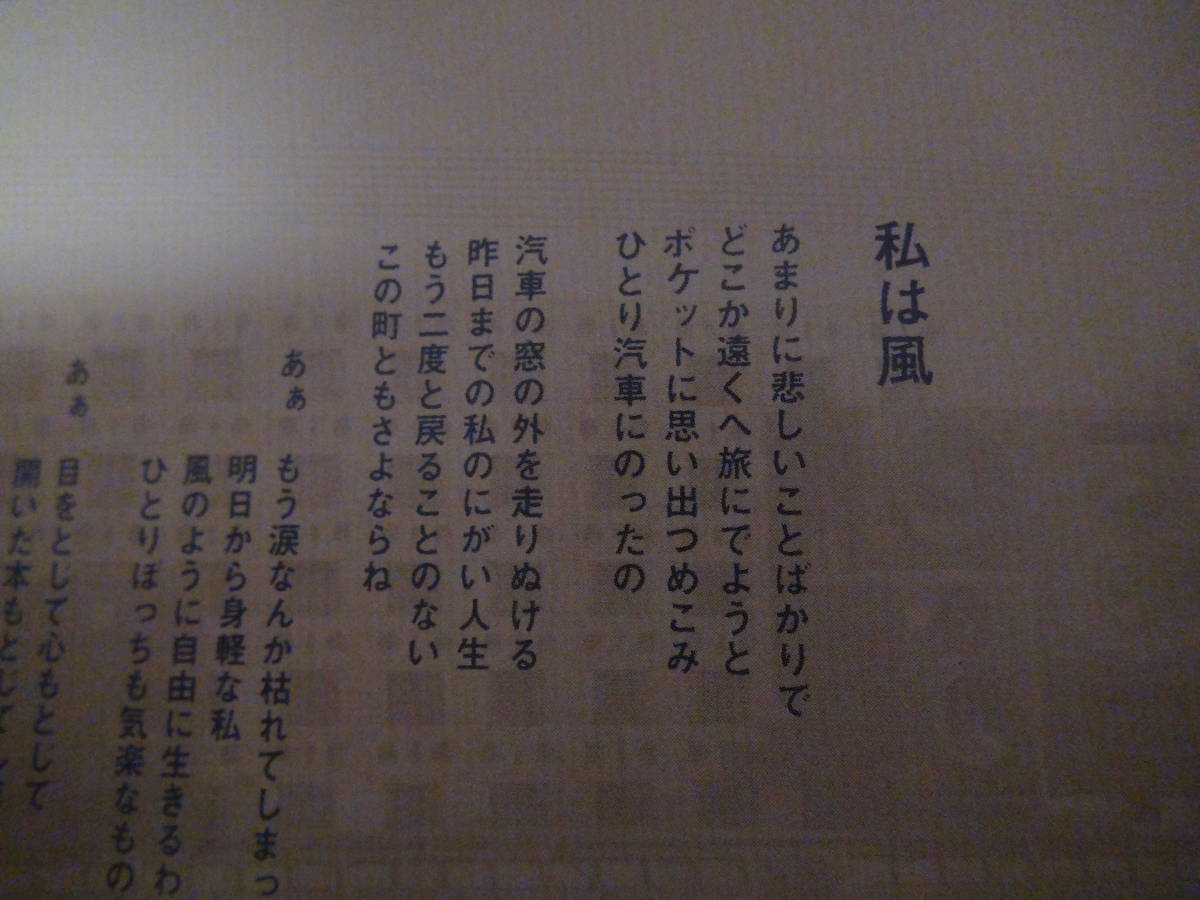 私は風
あまりに悲しいことばかりで
どこか遠くへ旅にでようと
ポケットに思い出つめこみ
ひとり汽車にのったの
汽車の窓の外を走りぬける
昨日までの私のにがい人生
もう二度と戻ることのない
この町ともさよならね
あぁ
もう涙なんか枯れてしまっ
明日から身軽な私
風のように自由に生きるわ
ひとりぼっちも気楽なもの
あぁ
目をとじて心もとじて
開いた本もとじて